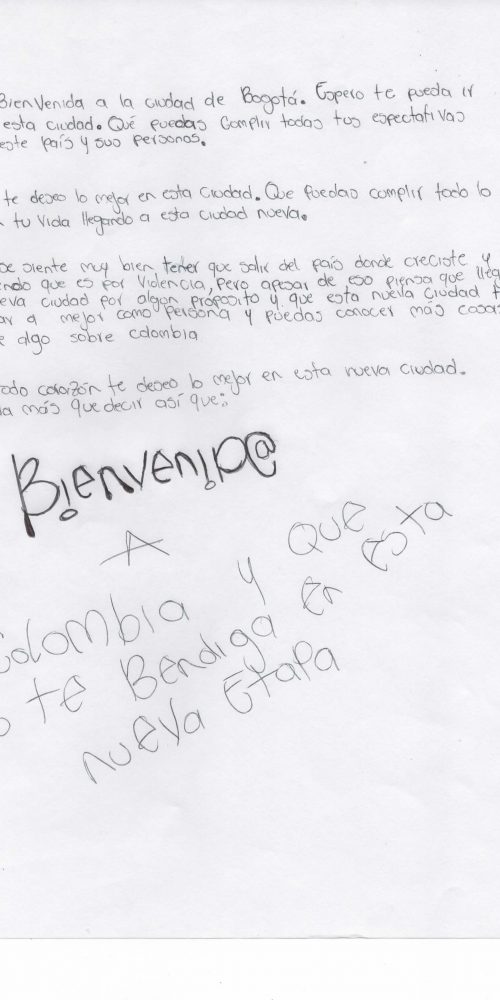 BienVenida a la ciudad de Bogotá. Espero te pueda ir
esta ciudad. Qué puedas Complir todas tus espectativas
este país y sus personas.
te deseo lo mejor en esta Ciudad. Que puedas complir todo lo
tu vida llegando a esta ciudad nueva.
se siente muy bien, tener que salir del país donde creciste y
endo que es por Violencia, pero apesar de eso piensa que lleg
eva ciudad por algon proposito y que esta nueva ciudad t
ar a mejor como persona y puedas conocer más cosas
e algo sobre colombia
odo corazón te deseo lo mejor en esta nueva ciudad.
da más que decir así que::
Bienvenid@
A
Colombia y que
te Bendiga en esta
nueva Etapa